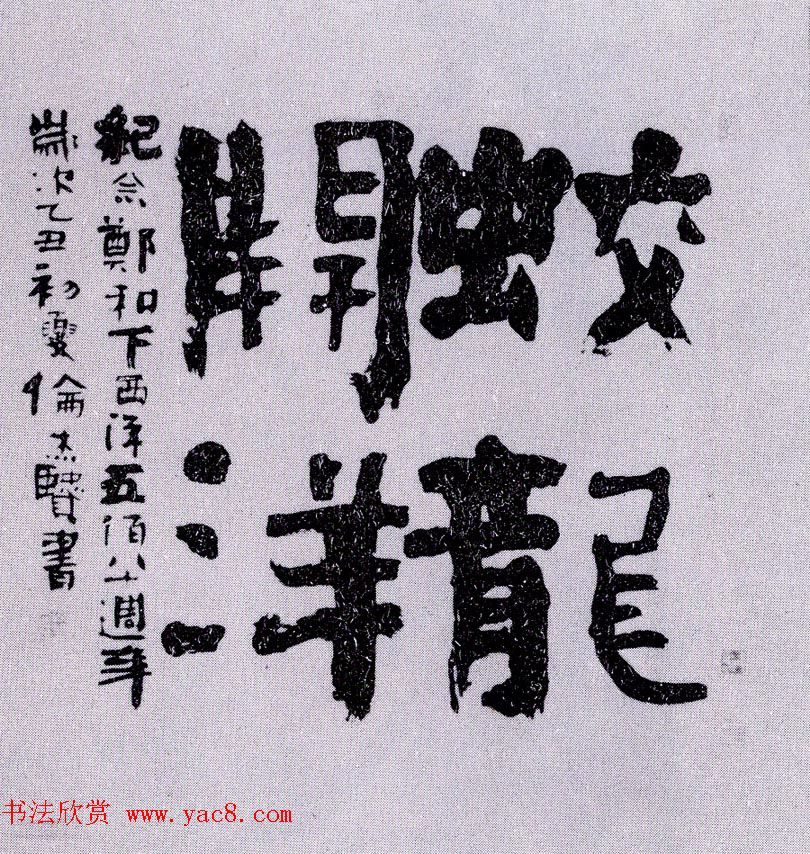 蛟龍
開洋
紀念鄭和下西洋五佰八十週年
歲次乙丑初夏倫杰賢書
书法欣赏 www.yac8.com